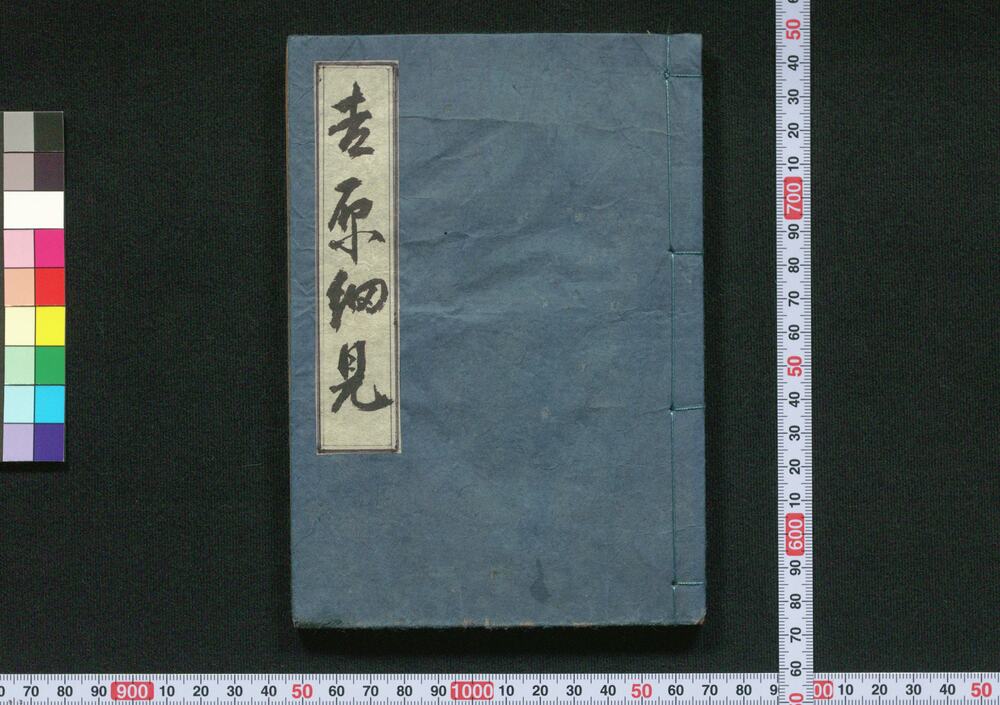 吉原細見
50
40
30
20
10
700
90
80
70
60
50
40
30
20
10
600
90
80
70
60
70 80 90 900 10 20 30 40 50 60 70 80 90 1000 10 20 30 40 50 60 70 80 9 00 10 20 30 40 50